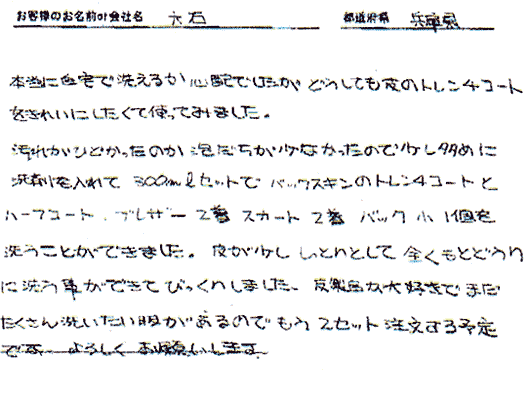 お客様のお名前or会社名 六石 都道府県 兵庫県
本当に自宅で洗えるか心配でしたが どうしても皮のトレンチコート
をきれいにしたくて使ってみました。
汚れがひどかったのか 泡だちが少なかったので少し多めに
洗剤を入れて 300mlセットで バックスキンのトレンチコートと
ハーフコート、ブレザー 2着 スカート 2着 バック 小 1個を
洗うことができました。 皮が少し しっとりとして 全くもとどうり
に洗う事ができて びっくりしました、 皮製品が大好きで まだ
たくさん洗いたい服があるので もう 2セット 注文する予定
です よろしく お願いします